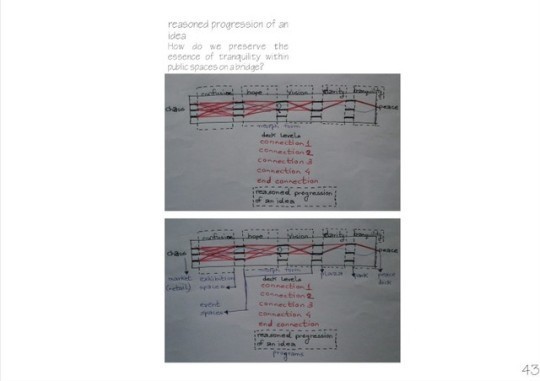 reasoned progression of an
idea
How do we preserve the
essence of tranquility within
public spaces on a bridge?
confusion hope vision clarity tranquility
chaos peace
morph form
deck levels
connection 1
connection 2
connection 3
connection 4
end connection
reasoned progression
of an idea
confusion hope vision clarity tranquility
chaos peace
morph form
market exhibition
(retail) spaces
deck levels
connection 1
event connection 2
spaces connection 3
connection 4
end connection
reasoned progression
of an idea
programs
43